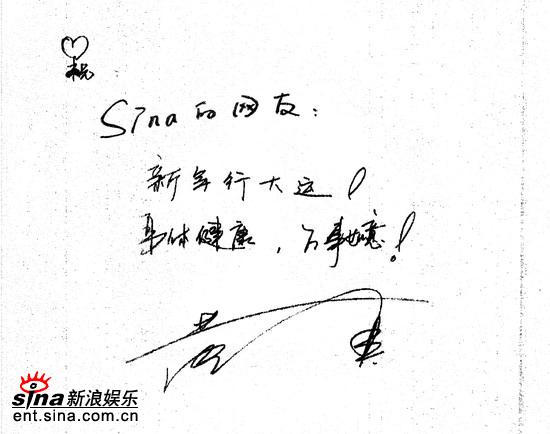 祝
Sina的网友：
新年行大运！
身体健康，万事如意！
sina新浪娱乐
ent.sina.com.cn